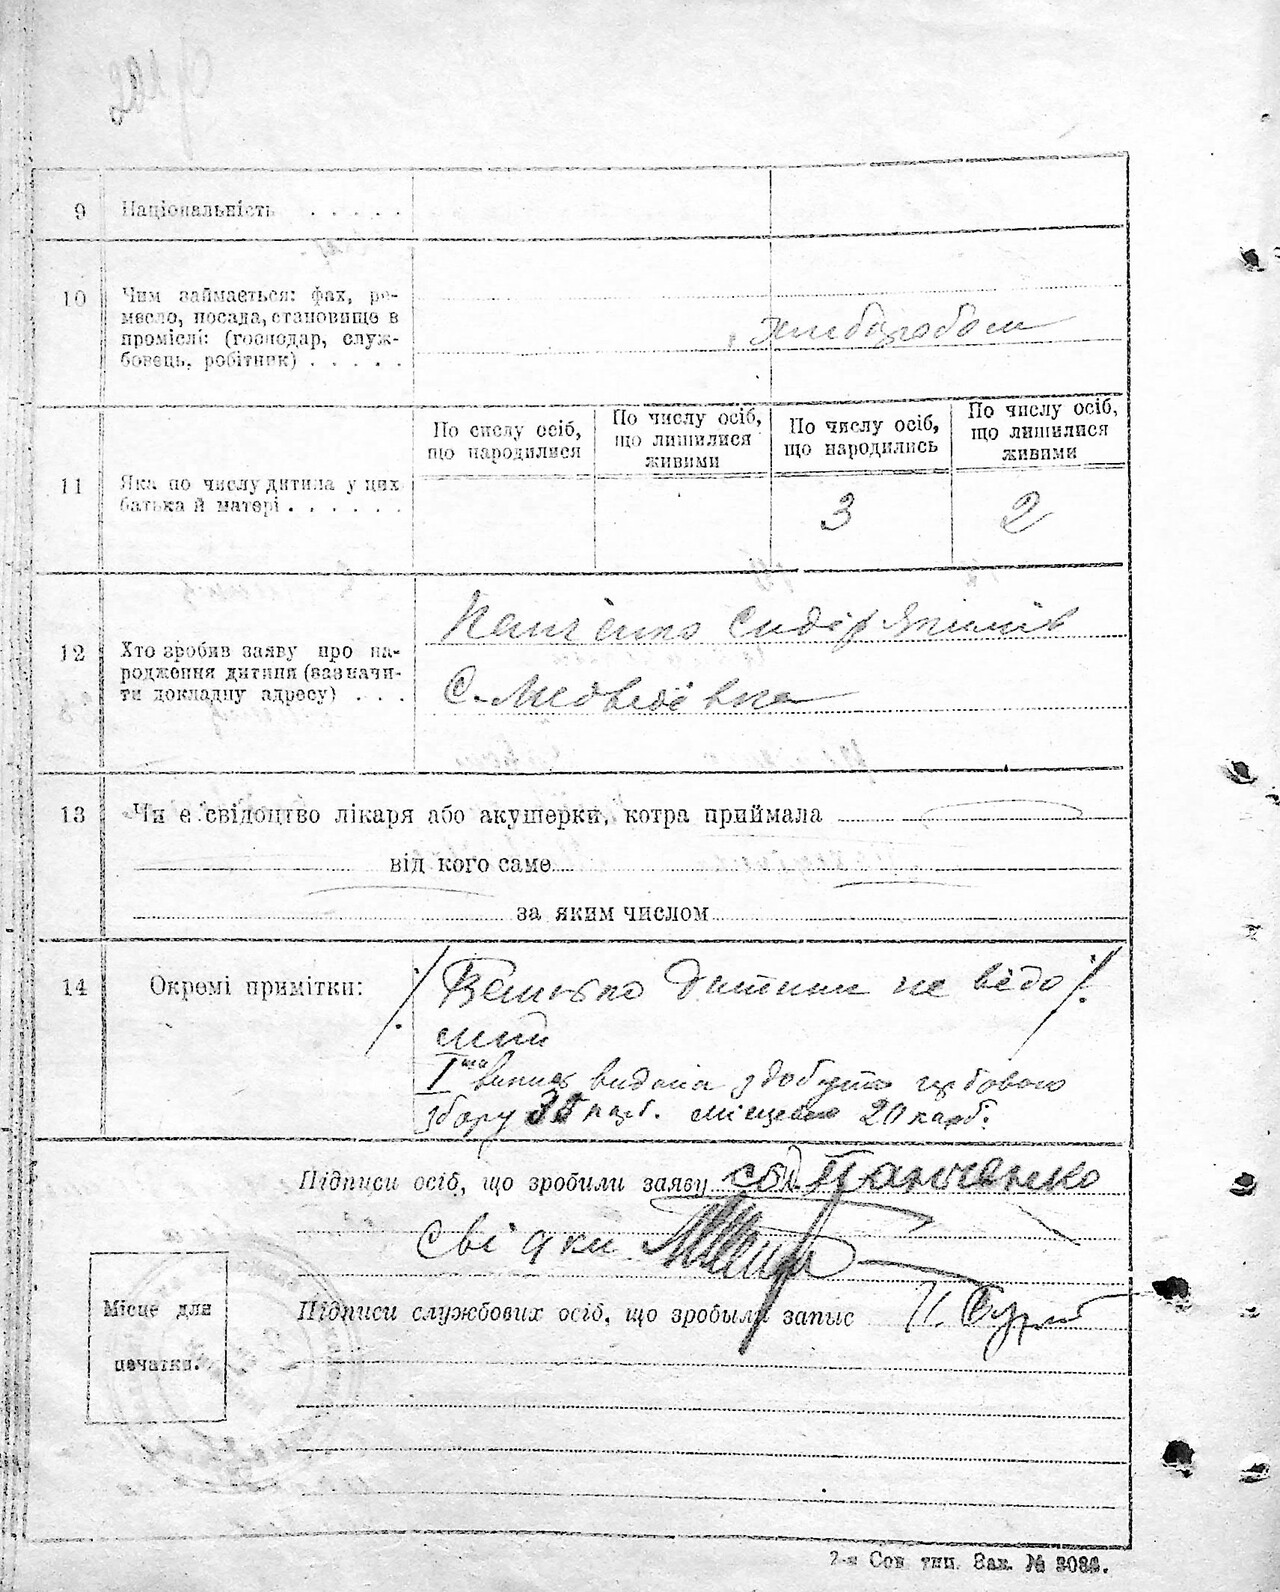 9 Національність . . . . .
10 Чим займається: фах, ре-
месло, посада, становище в
промислі: (господар, служ-
бовець, робітник) . . . . .
хлиборобом
11 Яка по числу дитина у цих
батька й матері . . . . . .
По числу осіб,
що народилися
По числу осіб,
що лишилися
живими
По числу осіб,
що народились
По числу осіб,
що лишилися
живими
3 2
12 Хто зробив заяву про на-
родження дитини (зазначи-
ти докладну адресу) . . .
Панченко Сидір Якимів
С. Медведівка
13 Чи є свідоцтво лікаря або акушерки, котра приймала
від кого саме
за яким числом
14 Окремі примітки:
Батько дитини не відо
мий
I випис видана здобуто гербового
збору 35 карб. місцевого 20 карб.
Підписи осіб, що зробили заяву Панченко
Свідки
Підписи службових осіб, що зробыли запыс
Місце для
печатки.
2-я Сов. тип. Зак. № 3086.